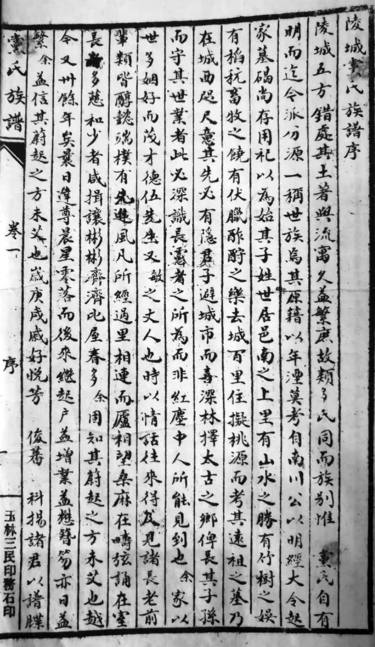 陵城黨氏族譜序
陵城五方錯處其土著與流寓久益繁庶故類多氏同而族別惟 黨氏自有
明而迄今派分源一稱世族焉其原籍以年湮莫考自南川公以明經大令起
家墓碣尚存用祀以為始其子姓世居邑南之上里有山水之勝有竹樹之娛
有稻秫畜牧之饒有伏臘酢酬之樂去城百里住擬桃源而考其遠祖之墓乃
在城西咫尺意其先必有隱君子避城市而喜深林擇太古之鄉俾長其子孫
而守其世業者此必深識長慮者之所為而非紅塵中人所能見到也余家以
世多姻好而茂才德伍先生又敝之丈人也時以情話往來得及見諸長老前
輩類皆醇謹端樸有先進風凡所經過里相連而廬相望桑麻在疇弦誦在室
長多慈和少者咸揖讓彬彬齊濟比屋春多余用知其蔚起之方未艾也越
今又卅餘年矣曩日逢尊晨星零落而後來繼起戶益增業益懋簪笏亦日益
繁余益信其蔚起之方未艾也歲庚戌戚好悅芳 俊蕃 科揚諸君以譜牒
黨氏族譜
卷一
序
玉林三民印務石印